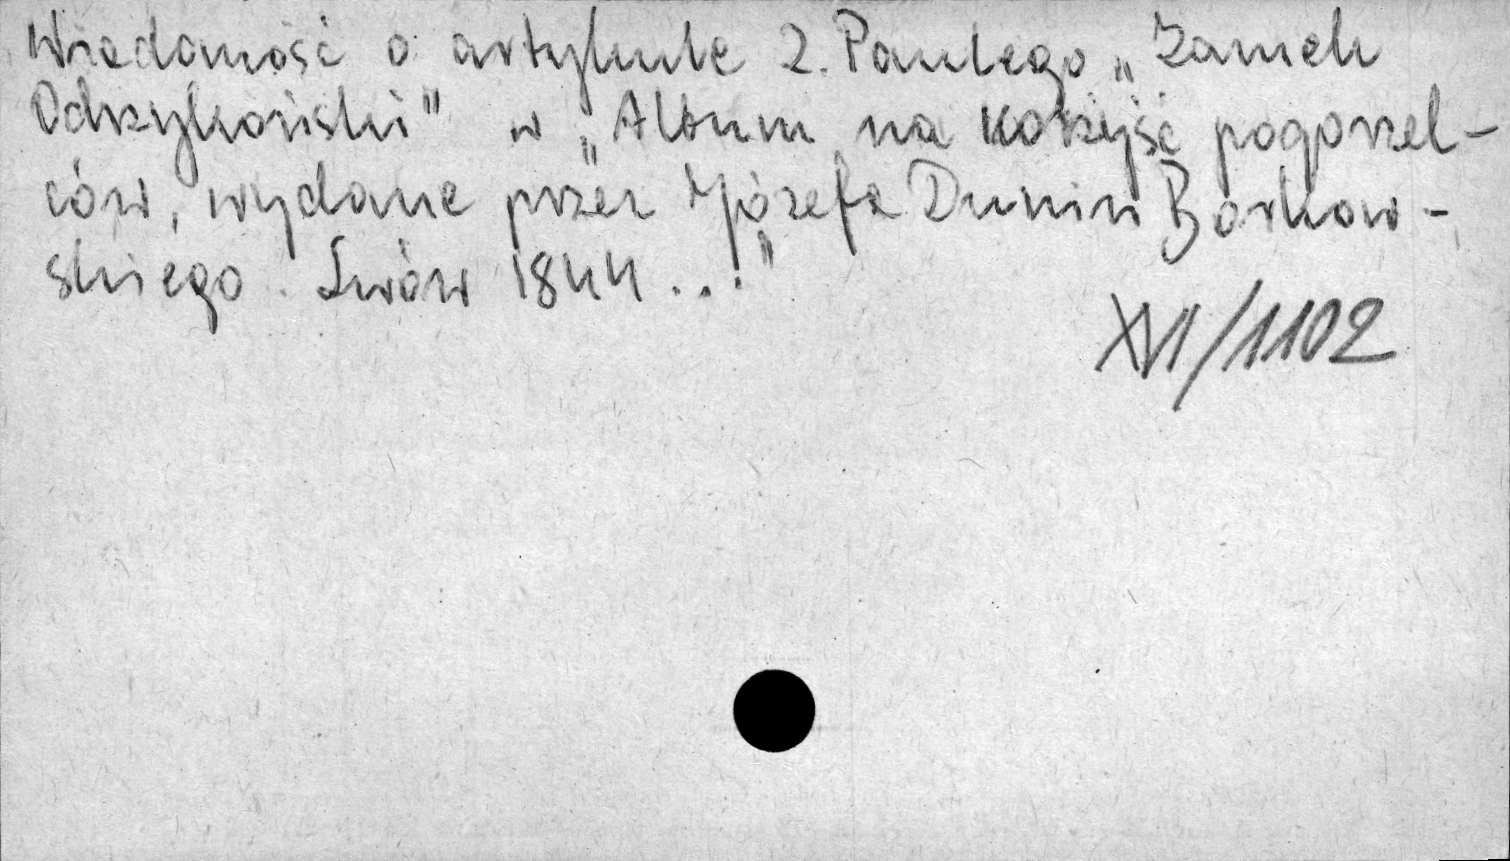 Wiadomość o artykule Ż. Paulego „Zamek
Odrzykoński" w „Album na korzyść pogorzel-
ców, wydane przez Józefa Dunin Borkow-
skiego. Lwów 1844..."
XVI/1102